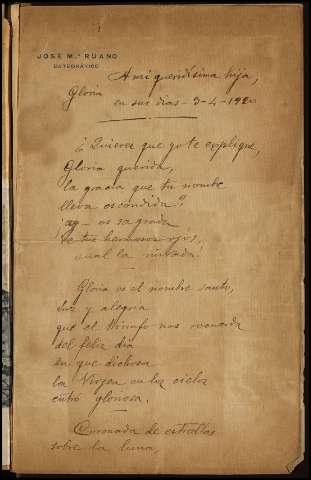 JOSÉ Mª RUANO
CATEDRÁTICO
A mi queridísima hija,
Gloria
en sus dias - 3-4-1920
¿Quieres que yo te explique,
Gloria querida,
la gracia que tu nombre
lleva escondida?
es sagrada
de tus hermosos ojos,
cual la mirada.
Gloria es el nombre santo,
luz y alegria
que el triunfo nos recuerda
del feliz dia
en que dichosa
la Virgen en los cielos
entró gloriosa.
Coronada de estrellas
sobre la luna,